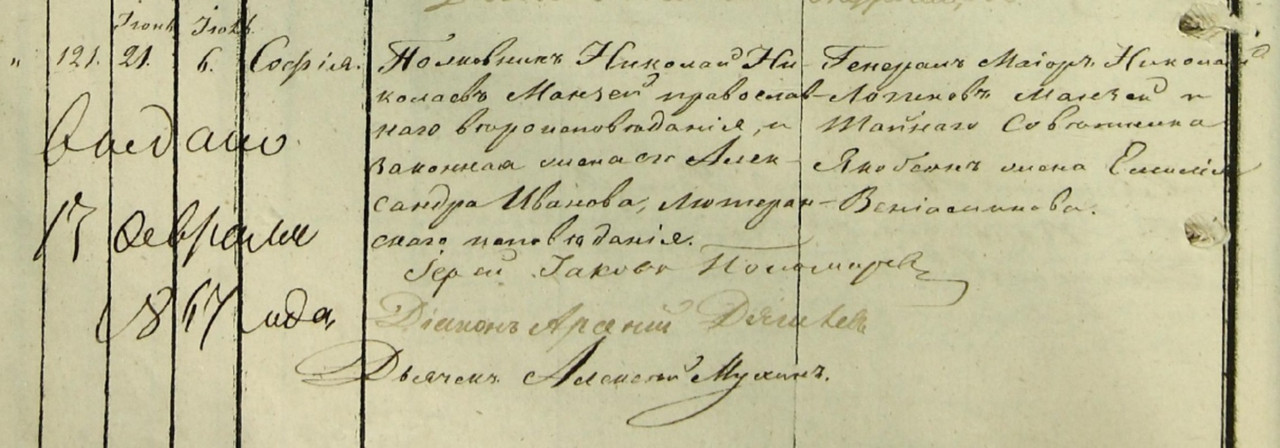 Іюня Іюля
" 121. 21. 6. Софія.
Полковникъ Николай Ни-
колаевъ Манзей православ-
наго вѣроисповѣданія, и
законная жена его Алек-
сандра Иванова, Лютеран-
скаго исповѣданія.
Генералъ Маіоръ Николай
Логиновъ Манзей и
Тайнаго Совѣтника
жена Емилія
Веніаминова.
Выдано
17 Февраля
1867 года
Іерей Іаковъ Пономарев
Діаконъ Арсеній
Дьячекъ Алексей Мухинъ.